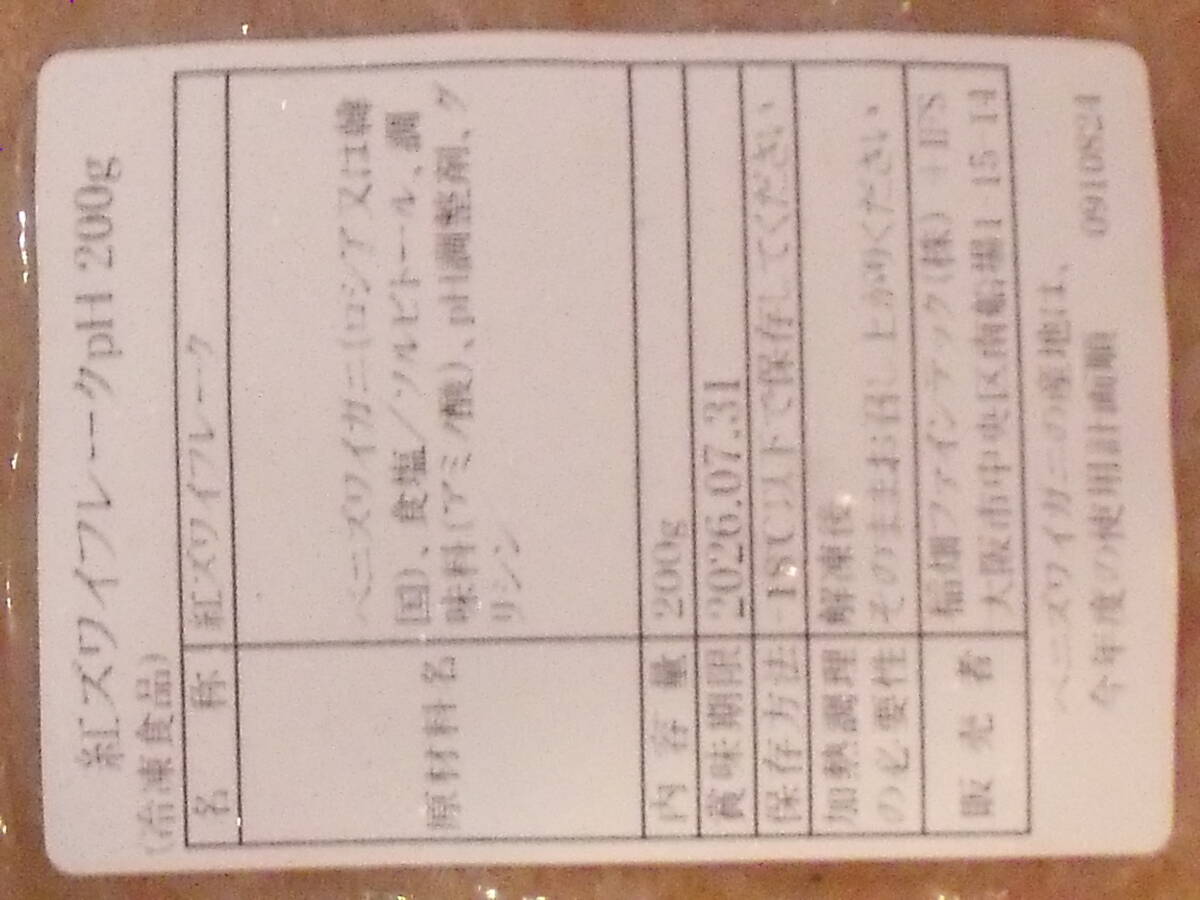 紅ズワイフレークpH 200g
(冷凍食品)
名称 紅ズワイフレーク
原材料名 ベニズワイガニ(ロシア又は韓
国)、食塩/ソルビトール、調
味料(アミノ酸)、pH調整剤、グ
リシン
内容量 200g
賞味期限 2026.07.31
保存方法 -18℃以下で保存してください
加熱調理 解凍後
の必要性 そのままお召し上がりください
販売者 稲畑ファインテック(株) +IFS
大阪市中央区南船場1-15-14
ベニズワイガニの産地は、
今年度の使用計画順 0910824